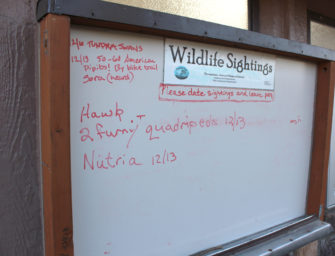 TUNDRA SWANS
12/13 50-60 American
Pipits! By bike trail
Sora (heard)
Wildlife Sightings
Please date sightings and leave
Hawk
2 furry quadripeds 12/13
Nutria 12/13